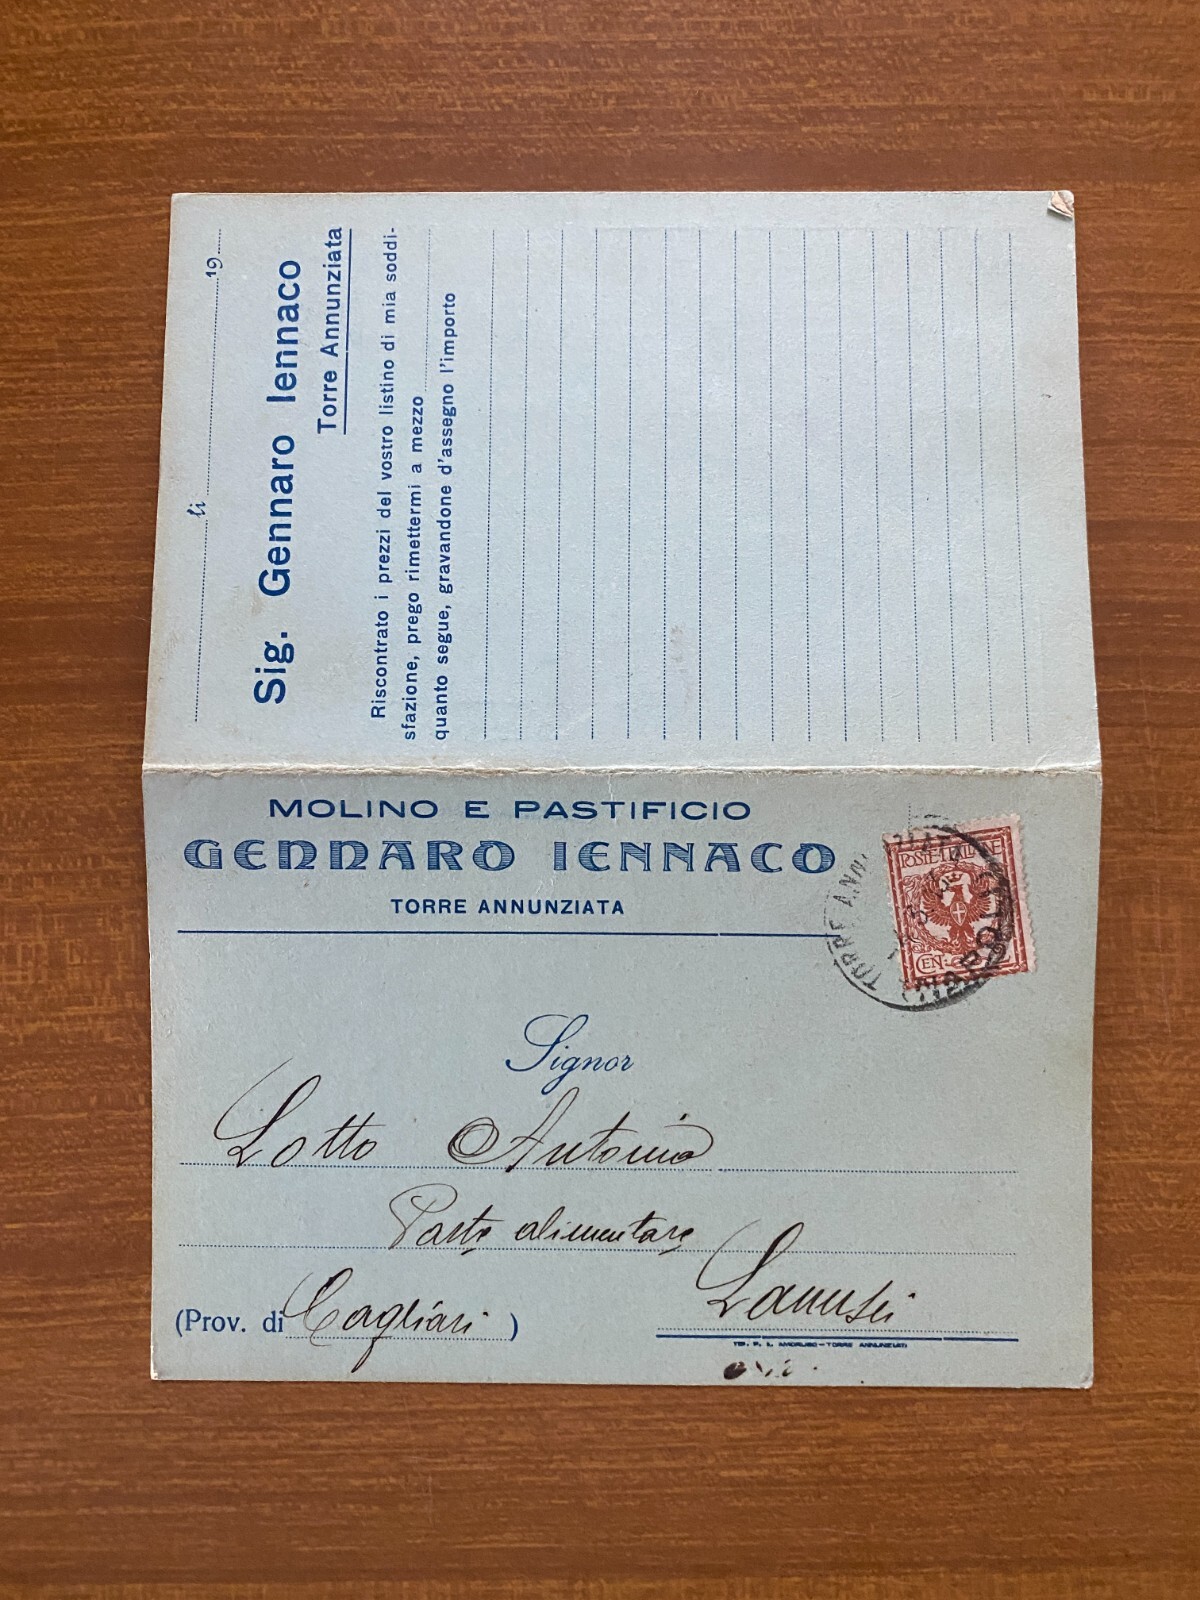 li 19
Sig. Gennaro Iennaco
Torre Annunziata
Riscontrato i prezzi del vostro listino di mia soddi-
sfazione, prego rimettermi a mezzo
quanto segue, gravandone d'assegno l'importo
MOLINO E PASTIFICIO
GENNARO IENNACO
TORRE ANNUNZIATA
POSTE ITALIANE
CEN. 2
TORRE ANNUNZIATA
(NAPOLI)
Signor
Lotto Antonio
Paste alimentare
Lanusei
(Prov. di Cagliari)
TIP. F. L. AMORUSO - TORRE ANNUNZIATA